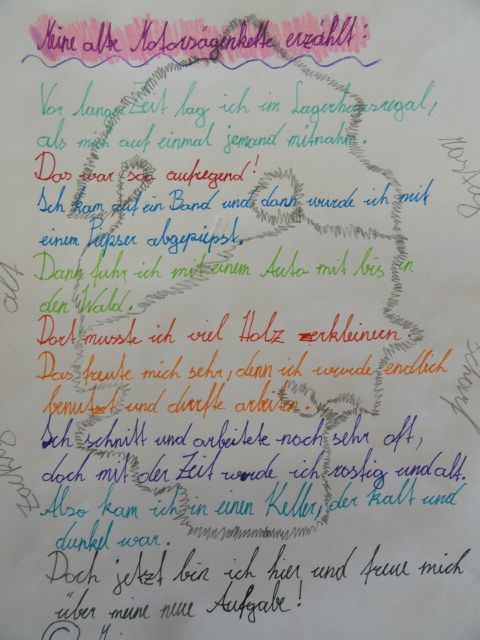 Meine alte Motorsägenkette erzählt:
Vor langer Zeit lag ich im Lagerhausregal,
als mich auf einmal jemand mitnahm.
Das war soo aufregend!
Ich kam auf ein Band und dann wurde ich mit
einem Piepser abgepiepst.
Dann fuhr ich mit einem Auto mit bis in
den Wald.
Dort musste ich viel Holz zerkleinern.
Das freute mich sehr, denn ich wurde endlich
benutzt und durfte arbeiten.
Ich schnitt und arbeitete noch sehr oft,
doch mit der Zeit wurde ich rostig und alt.
Also kam ich in einen Keller, der kalt und
dunkel war.
Doch jetzt bin ich hier und freue mich
über meine neue Aufgabe!
©
alt
scharf